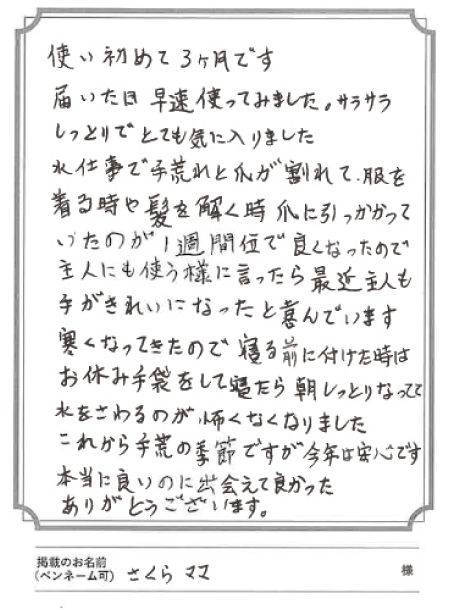 使い初めて3ヶ月です
届いた日早速使ってみました。サラサラ
しっとりでとても気に入りました
水仕事で手荒れと爪が割れて、服を
着る時や髪を解く時爪に引っかかって
いたのが1週間位で良くなったので
主人にも使う様に言ったら最近主人も
手がきれいになったと喜んでいます
寒くなってきたので寝る前に付けた時は
お休み手袋をして寝たら朝しっとりなってて
水をさわるのが怖くなくなりました
これから手荒の季節ですが今年は安心です
本当に良いのに出会えて良かった
ありがとうございます。
掲載のお名前
(ペンネーム可) さくらママ 様